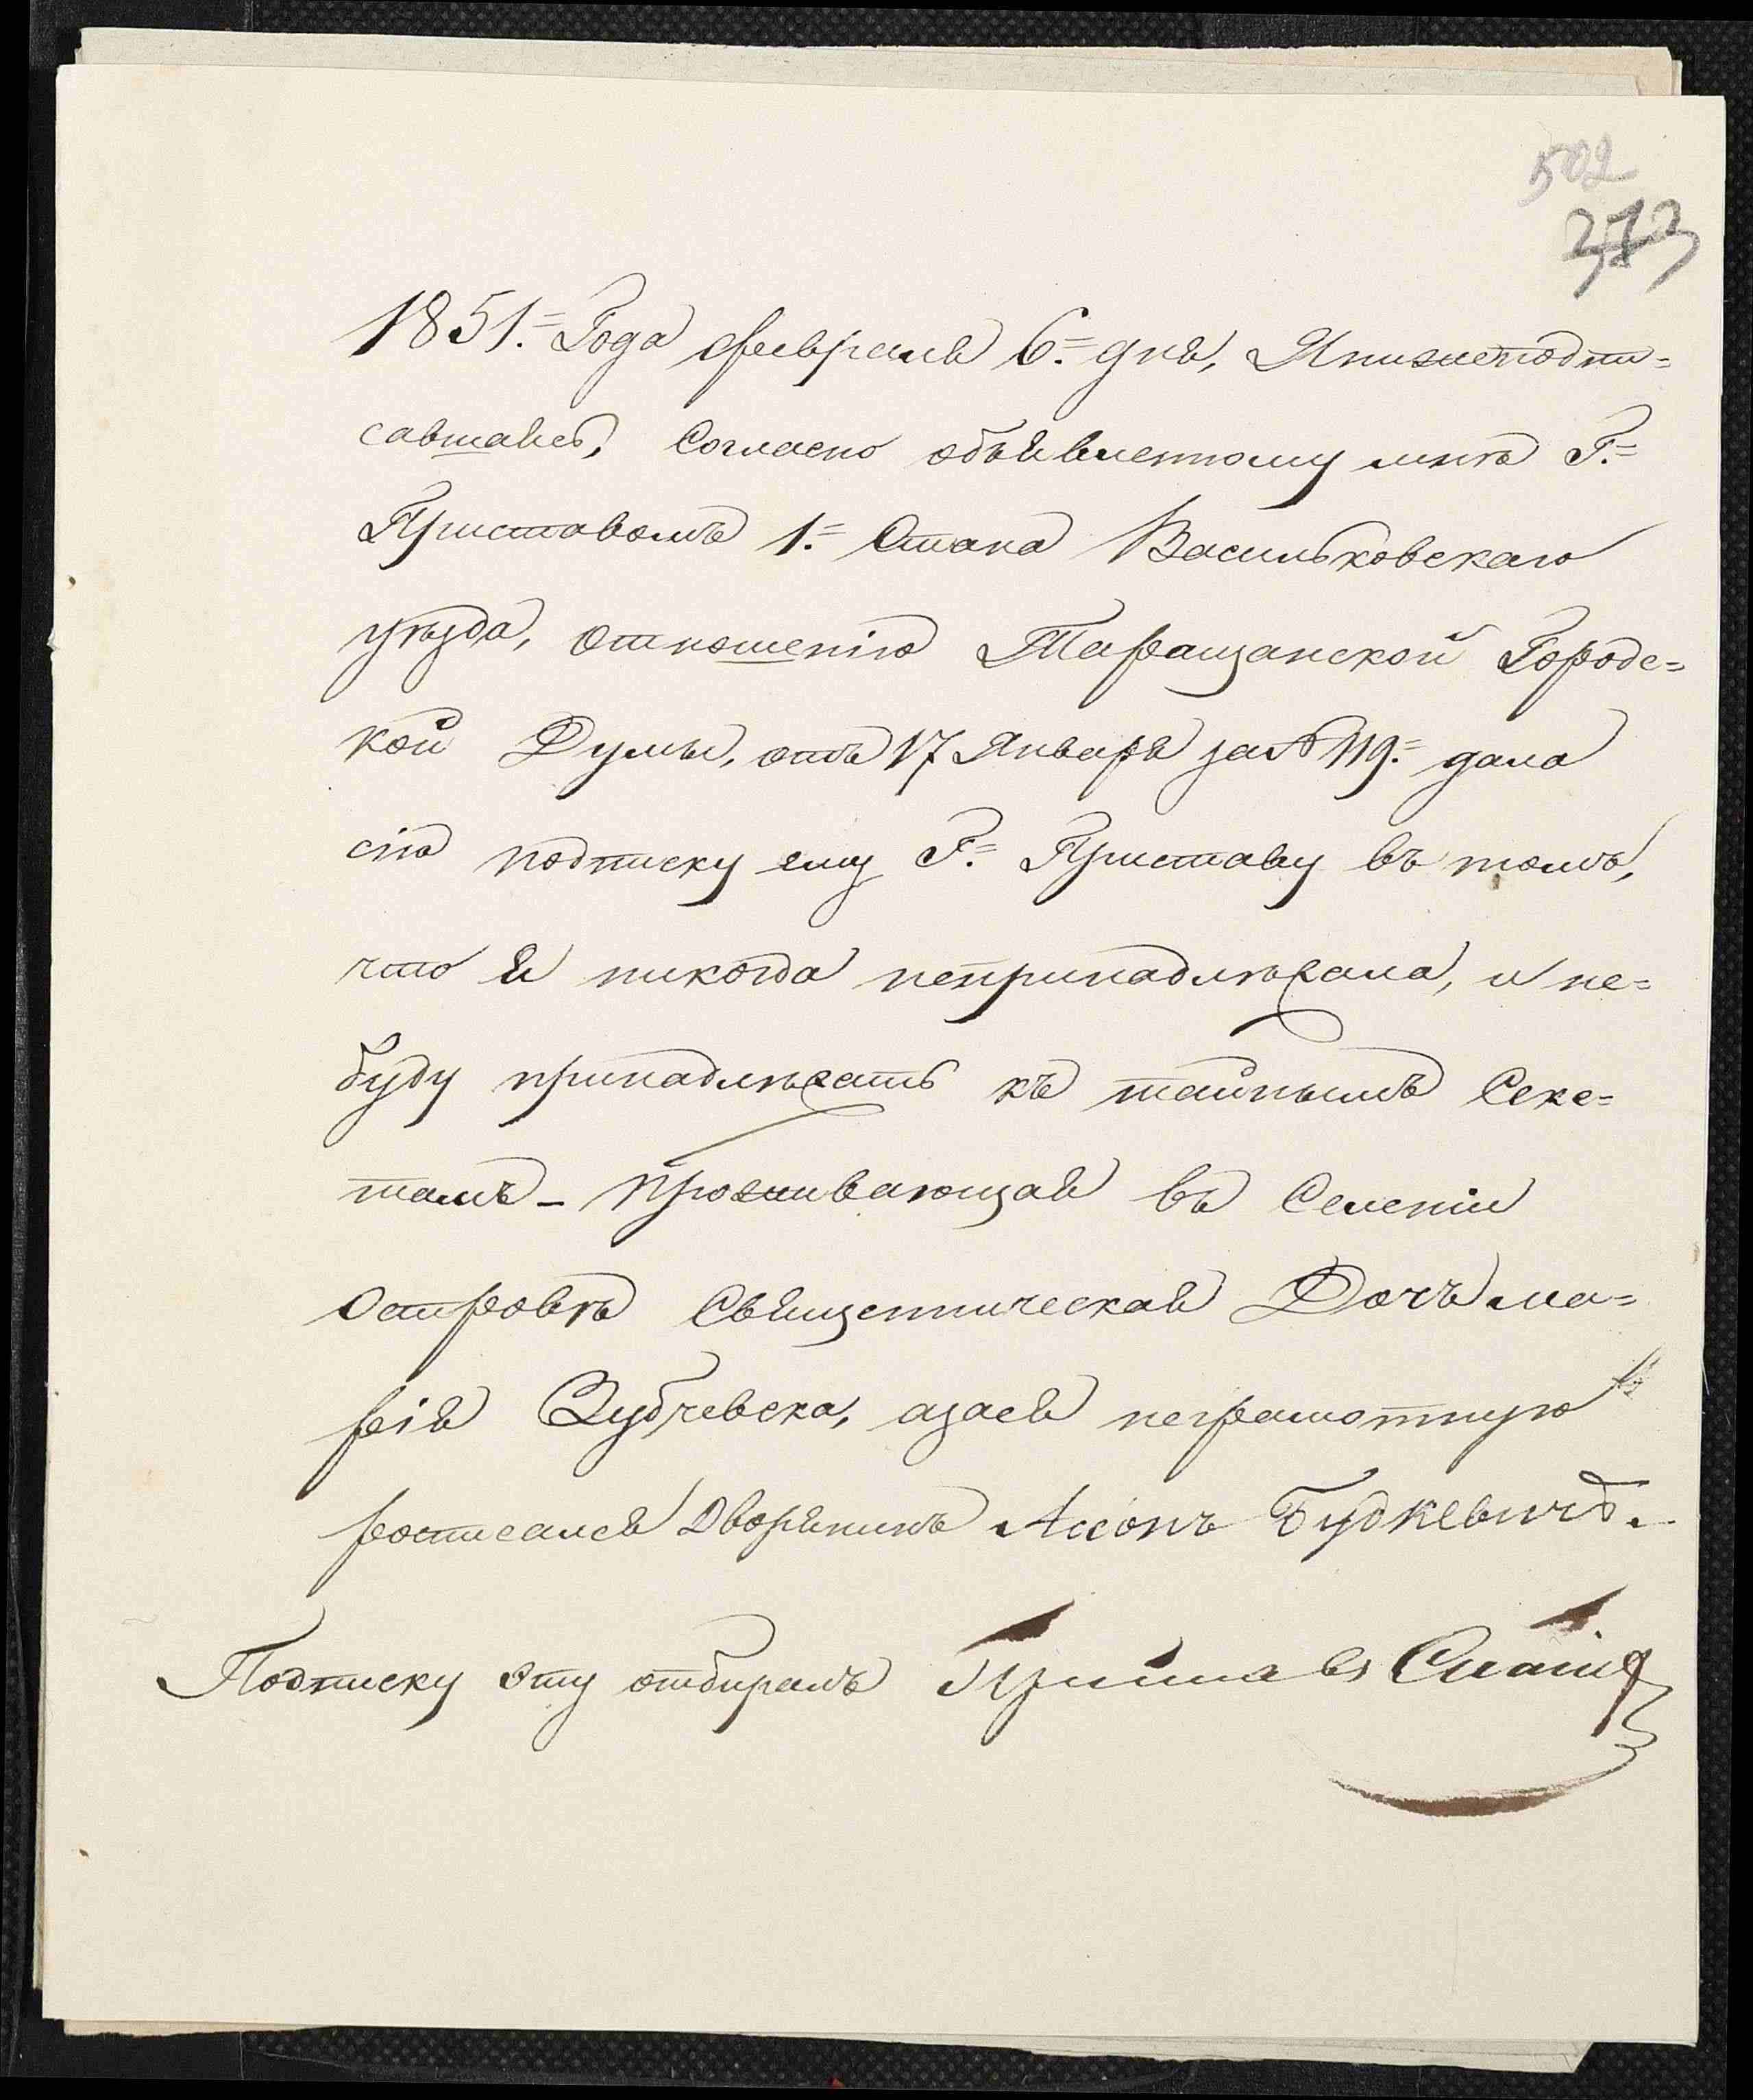 502
373
1851.= Года февраля 6.= дня, Я нижеподпи=
савшаясь, Согласно объявленному мнѣ Г.=
Приставомъ 1.= Стана Васильковскаго
уѣзда, Отношенію Таращанской Городс=
кой Думы, отъ 17 Января за № 119.= дала
сію подписку ему Г.= Приставу въ томъ,
что я никогда непринадлѣжала, и не=
буду принадлѣжать къ тайнымъ Секс=
тамъ - проживающая въ Селеніи
Островѣ Свящетническая Дочъ Ма=
рія Зубчевска, а за ея неграмотную
росписался Дворянинъ Будкевичъ.
Подписку эту отбиралъ Приставъ